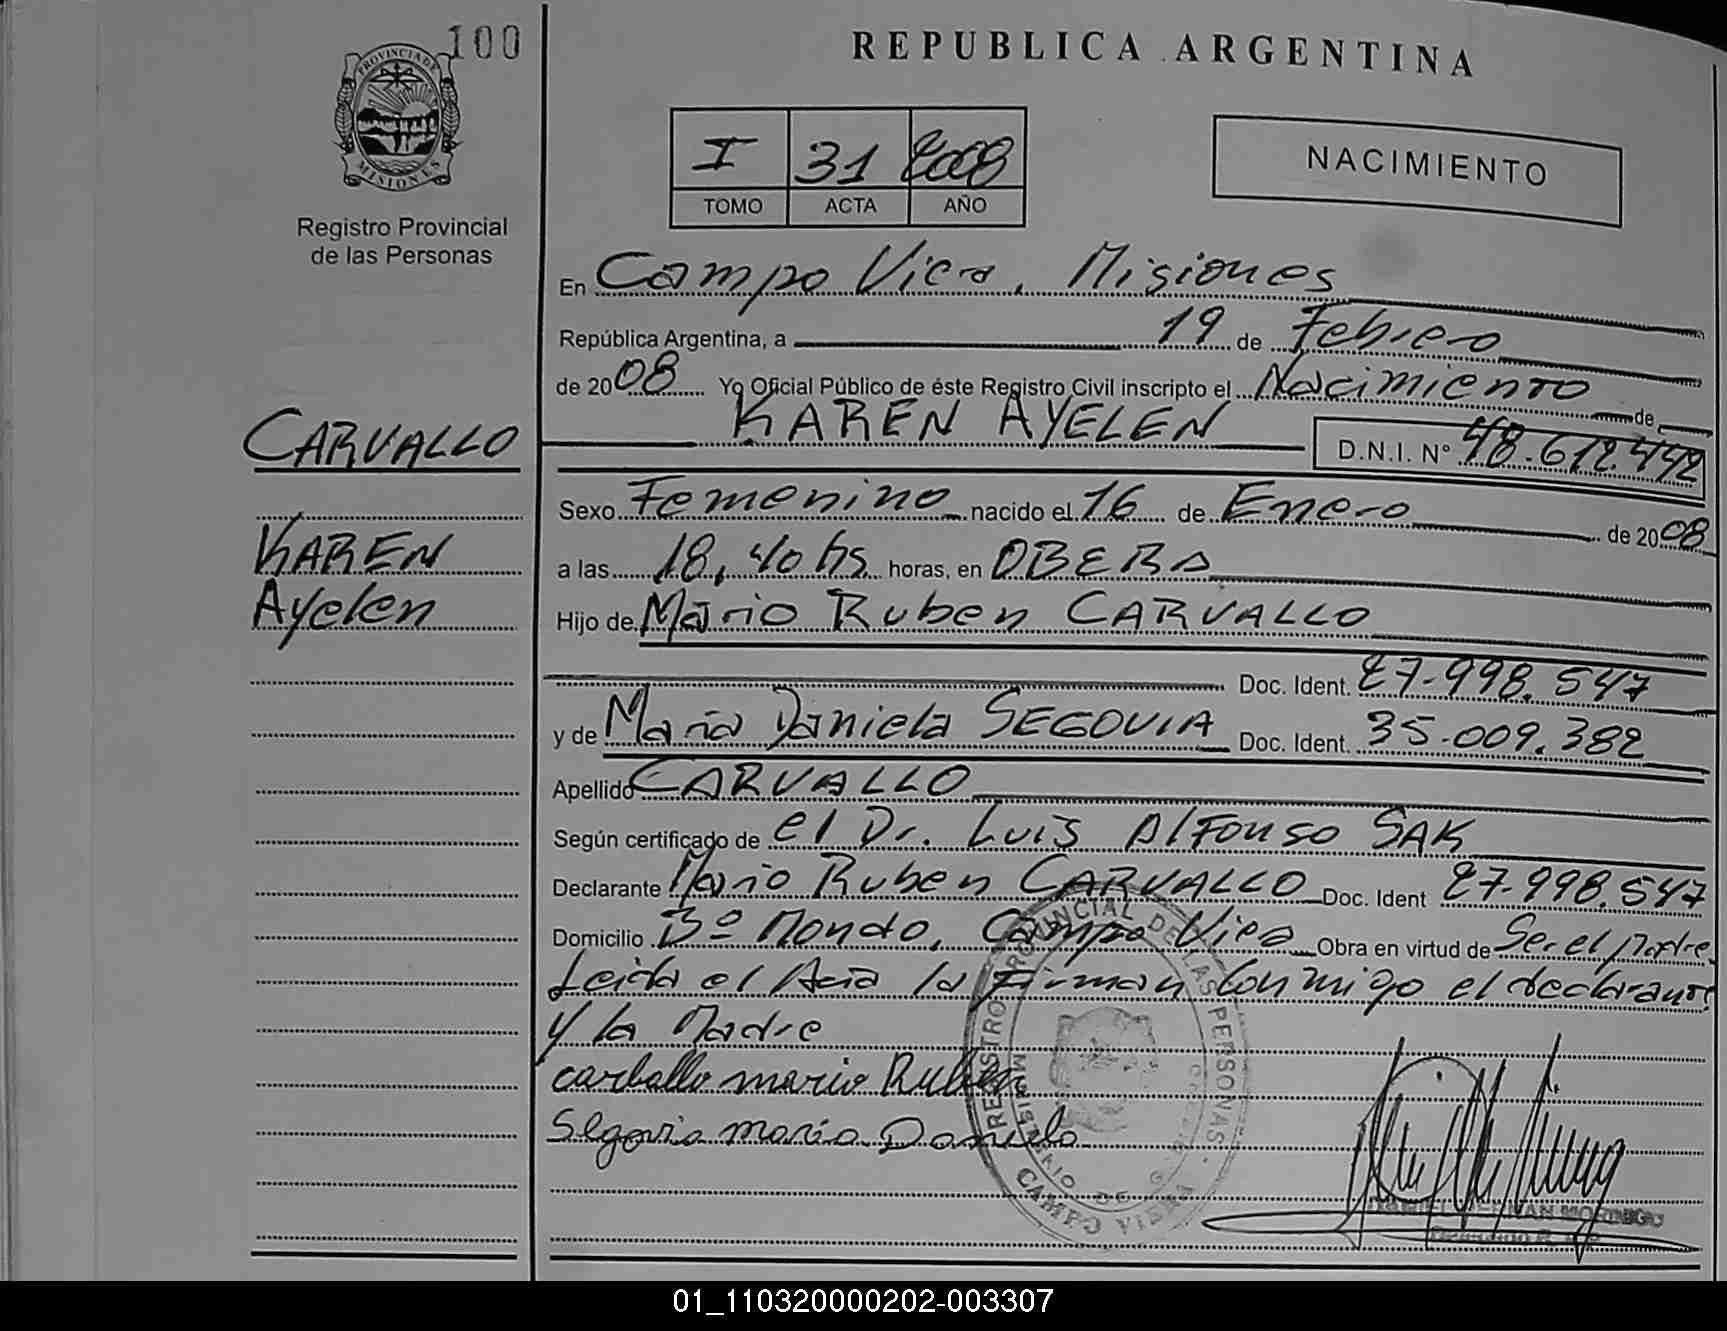 100
PROVINCIA DE
MISIONES
Registro Provincial
de las Personas
CARVALLO
KAREN
Ayelen
REPUBLICA ARGENTINA
I 31 2008
TOMO ACTA AÑO
NACIMIENTO
En Campo Viera, Misiones
República Argentina, a 19 de Febrero
de 2008 Yo Oficial Público de éste Registro Civil inscripto el Nacimiento de
KAREN AYELEN D.N.I. Nº 48.612.442
Sexo Femenino nacido el 16 de Enero de 2008
a las 18,40 hs horas, en OBERA
Hijo de Mario Ruben CARVALLO
Doc. Ident. 27.998.547
y de Maria Daniela SEGOVIA Doc. Ident. 35.009.382
Apellido CARVALLO
Según certificado de el Dr. Luis Alfonso SAK
Declarante Mario Ruben CARVALLO Doc. Ident 27.998.547
Domicilio Bº Mondo, Campo Viera Obra en virtud de Ser el Padre
Leida el Acta la Firman Conmigo el declarante
y la Madre
carballo mario Ruben
Segovia maria Daniela
REGISTRO PROVINCIAL DE LAS PERSONAS
MINISTERIO DE G
CAMPO VIERA
01_110320000202-003307